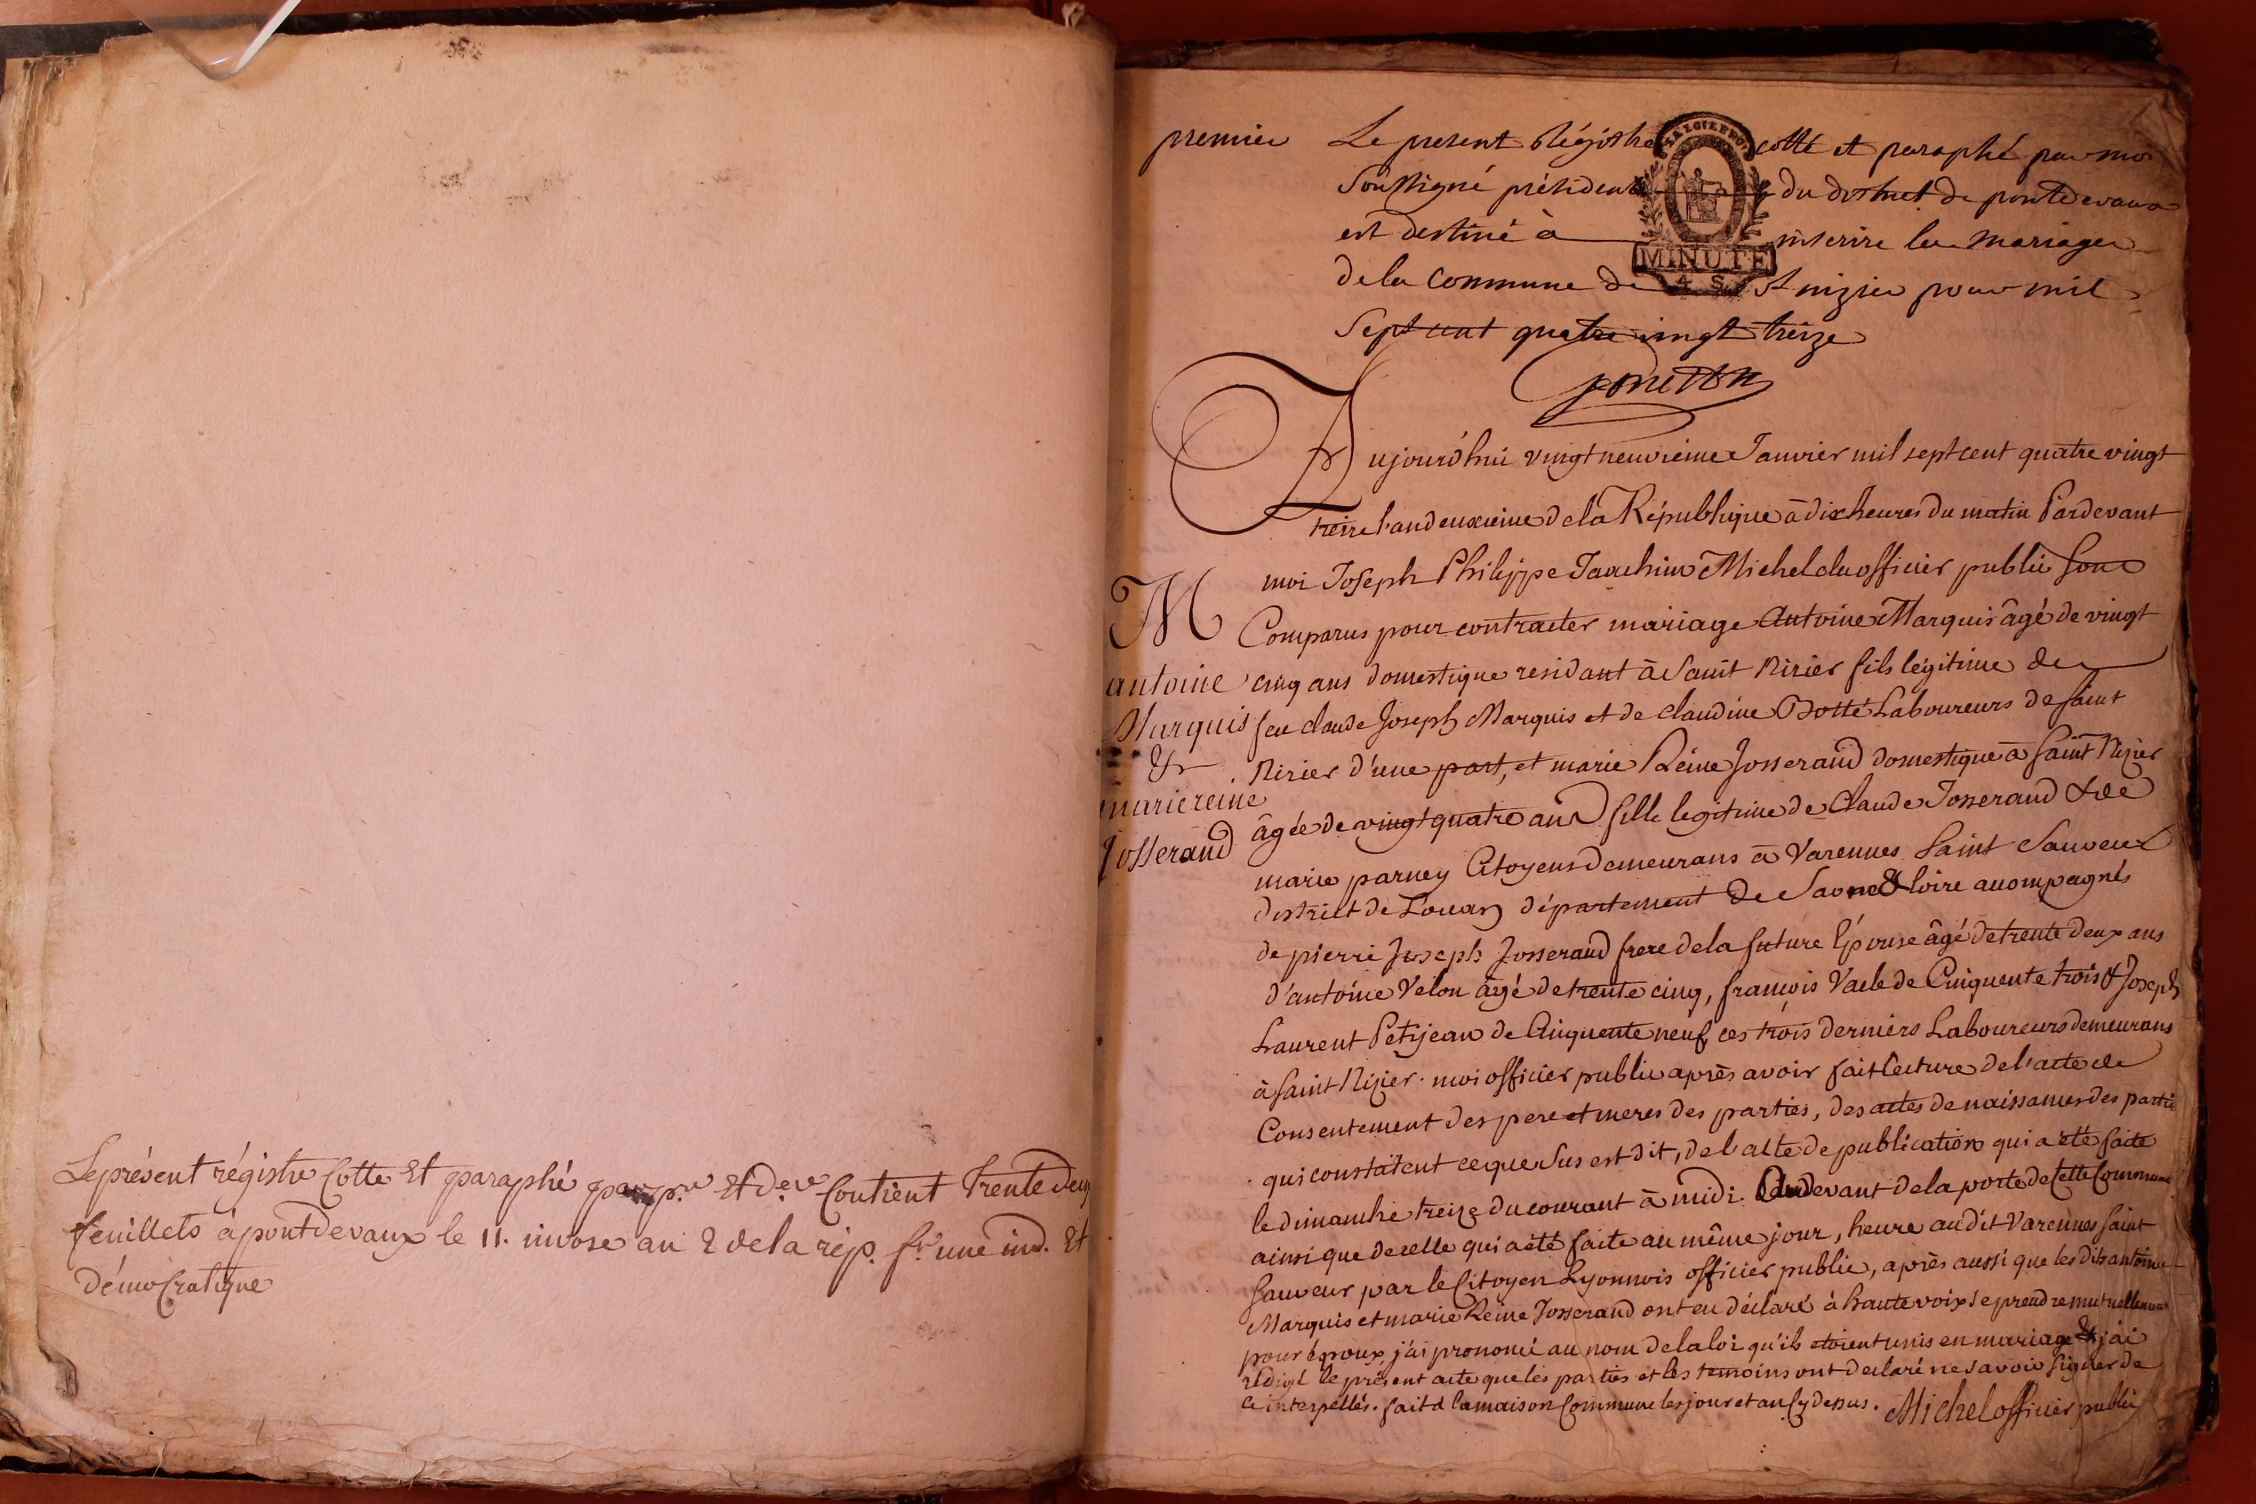 Le présent régistre Cotté Et paraphé par pr. Et der Contient trente deux
feuillets à pontdevaux le 11. nivose an 2 de la rép. fr. une ind. Et
démocratique
premier
Le present Régistre cotté et paraphé par moi
soussigné président du district de pontdevaux
est destiné à inscrire les mariages
de la Commune de St nizier pour mil
Sept cent quatre vingt treize
LA LOI ET LE ROI
MINUTE
4 S.
Aujourd'hui vingt neuvieme Janvier mil sept cent quatre vingt
treize l'an deuxieme de la République à dix heures du matin Pardevant
moi Joseph Philippe Joachim Michel élu officier public Sont
Comparus pour contracter mariage Antoine Marquis âgé de vingt
cinq ans domestique residant à Saint Nizier fils légitime de
feu claude Joseph Marquis et de claudine Botté Laboureurs de saint
Nizier d'une part, et marie Reine Josserand domestique à Saint Nizier
âgée de vingt quatre ans fille legitime de Claude Josserand & de
marie parney Citoyens demeurans à Varennes Saint Sauveur
district de Louan département de Saone & loire accompagnés
de pierre Joseph Josserand frere de la future Épouse âgé de trente deux ans
d'antoine Velon âgé de trente cinq, françois Vacle de Cinquente trois & Joseph
Laurent Petijean de Cinquente neuf, ces trois derniers Laboureurs demeurans
à saint Nizier. moi officier public après avoir fait lecture de l'acte de
Consentement des pere et meres des parties, des actes de naissances des parties
qui constatent ce que sus est dit, de l'acte de publication qui a été faite
le dimanche treize du courant à midi audevant de la porte de Cette Commune
ainsi que de celle qui a été faite au même jour, heure audit Varennes Saint
Sauveur par le Citoyen Lyonnois officier public, après aussi que les dits antoine
Marquis et marie Reine Josserand ont eu déclaré à haute voix se prendre mutuellement
pour époux, j'ai prononcé au nom de la loi qu'ils etoient unis en mariage & j'ai
rédigé le présent acte que les parties et les temoins ont declaré ne savoir signer de
ce interpellés. fait à la maison Commune les jour et an Cy dessus. Michel officier public
M
antoine
Marquis
&
marie reine
Josserand